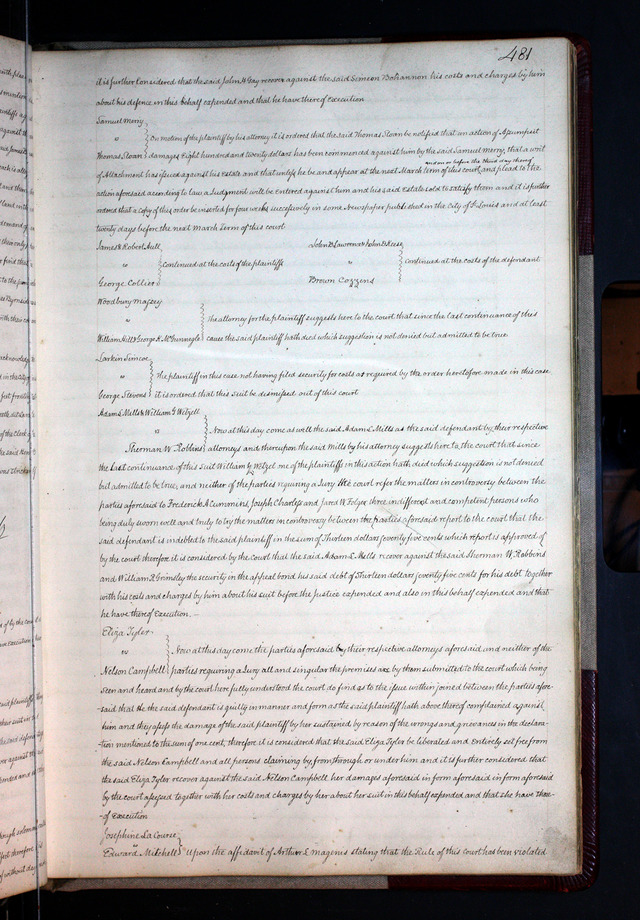 481
it is further Considered that the said John H Gay recover against the said Simeon Bohannon his costs and charges by him
about his defence in this behalf expended and that he have thereof execution
Samuel Merry
vs
On motion of the plaintiff by his attorney it is ordered that the said Thomas Sloan be notified that an action of Assumpsit
Thomas Sloan damages Eight hundred and twenty dollars has been commenced against him by the said Samuel Merry, that a writ
and on or before the third day thereof
of Attachment has issued against his Estate and that unless he be and appear at the next March term of this court and plead to the
action aforesaid according to law a Judgment will be Entered against him and his said Estate sold to satisfy them and it is further
ordered that a Copy of this order be inserted for four weeks successively in some Newspaper published in the City of St Louis and at least
twenty days before the next March Term of this court
James & Robert Aull
vs
Continued at the costs of the plaintiffs
George Collier
John B Lawrence & John B
vs
Continued at the costs of the defendant
Brown Cozzens
Woodbury Massey
vs
The attorney for the plaintiff suggests here to the court that since the last continuance of this
William Hill & George K McGunnegle cause the said plaintiff hath died which suggestion is not denied but admitted to be true
Larkin Simcoe
vs
The plaintiff in this case not having filed security for costs as required by the order heretofore made in this case
George Stevens it is ordered that this suit be dismissed out of this court
Adam L Mills & William G Wetzell
vs
Now at this day come as well the said Adam L Mills as the said defendant by their respective
Sherman W. Robbins attorneys and thereupon the said Mills by his attorney suggests here to the court that since
the last continuance of this suit William G Wetzel one of the plaintiffs in this action hath died which suggestion is not denied
but admitted to be true, and neither of the parties requiring a Jury the court refer the matters in controversy between the
parties aforesaid to Frederick A Cummens, Joseph Charless and Jared W Folger three indifferent and competent persons who
being duly sworn well and truly to try the matters in controversy between the parties aforesaid report to the court that the
said defendant is indebted to the said plaintiff in the sum of Thirteen dollars seventy five cents which report is approved of
by the court therefore it is considered by the Court that the said Adam L. Mills recover against the said Sherman W. Robbins
and William R Grimsley the security in the appeal bond his said debt of Thirteen dollars seventy five cents for his debt together
with his costs and charges by him about his suit before the Justice expended and also in this behalf expended and that
he have thereof Execution. —
Eliza Tyler
vs
Now at this day come the parties aforesaid by their respective attorneys aforesaid and neither of the
Nelson Campbell parties requiring a Jury all and singular the premises are by them submitted to the court which being
seen and heard and by the court here fully understood the court do find as to the issue within joined between the parties afore-
said that He the said defendant is guilty in manner and form as the said plaintiff hath above thereof complained against
him and they assess the damage of the said plaintiff by her sustained by reason of the wrongs and grievances in the declara-
tion mentioned to the sum of one cent, therefore it is considered that the said Eliza Tyler be liberated and Entirely set free from
the said Nelson Campbell and all persons claiming by, from, through or under him and it is further considered that
the said Eliza Tyler recover against the said Nelson Campbell her damages aforesaid in form aforesaid in form aforesaid
by the court assessed together with her costs and charges by her about her suit in this behalf expended and that she have there-
of Execution
Josephine La Course
vs
Edward Mitchell Upon the affidavit of Arthur L Magenis stating that the Rule of this Court has been violated